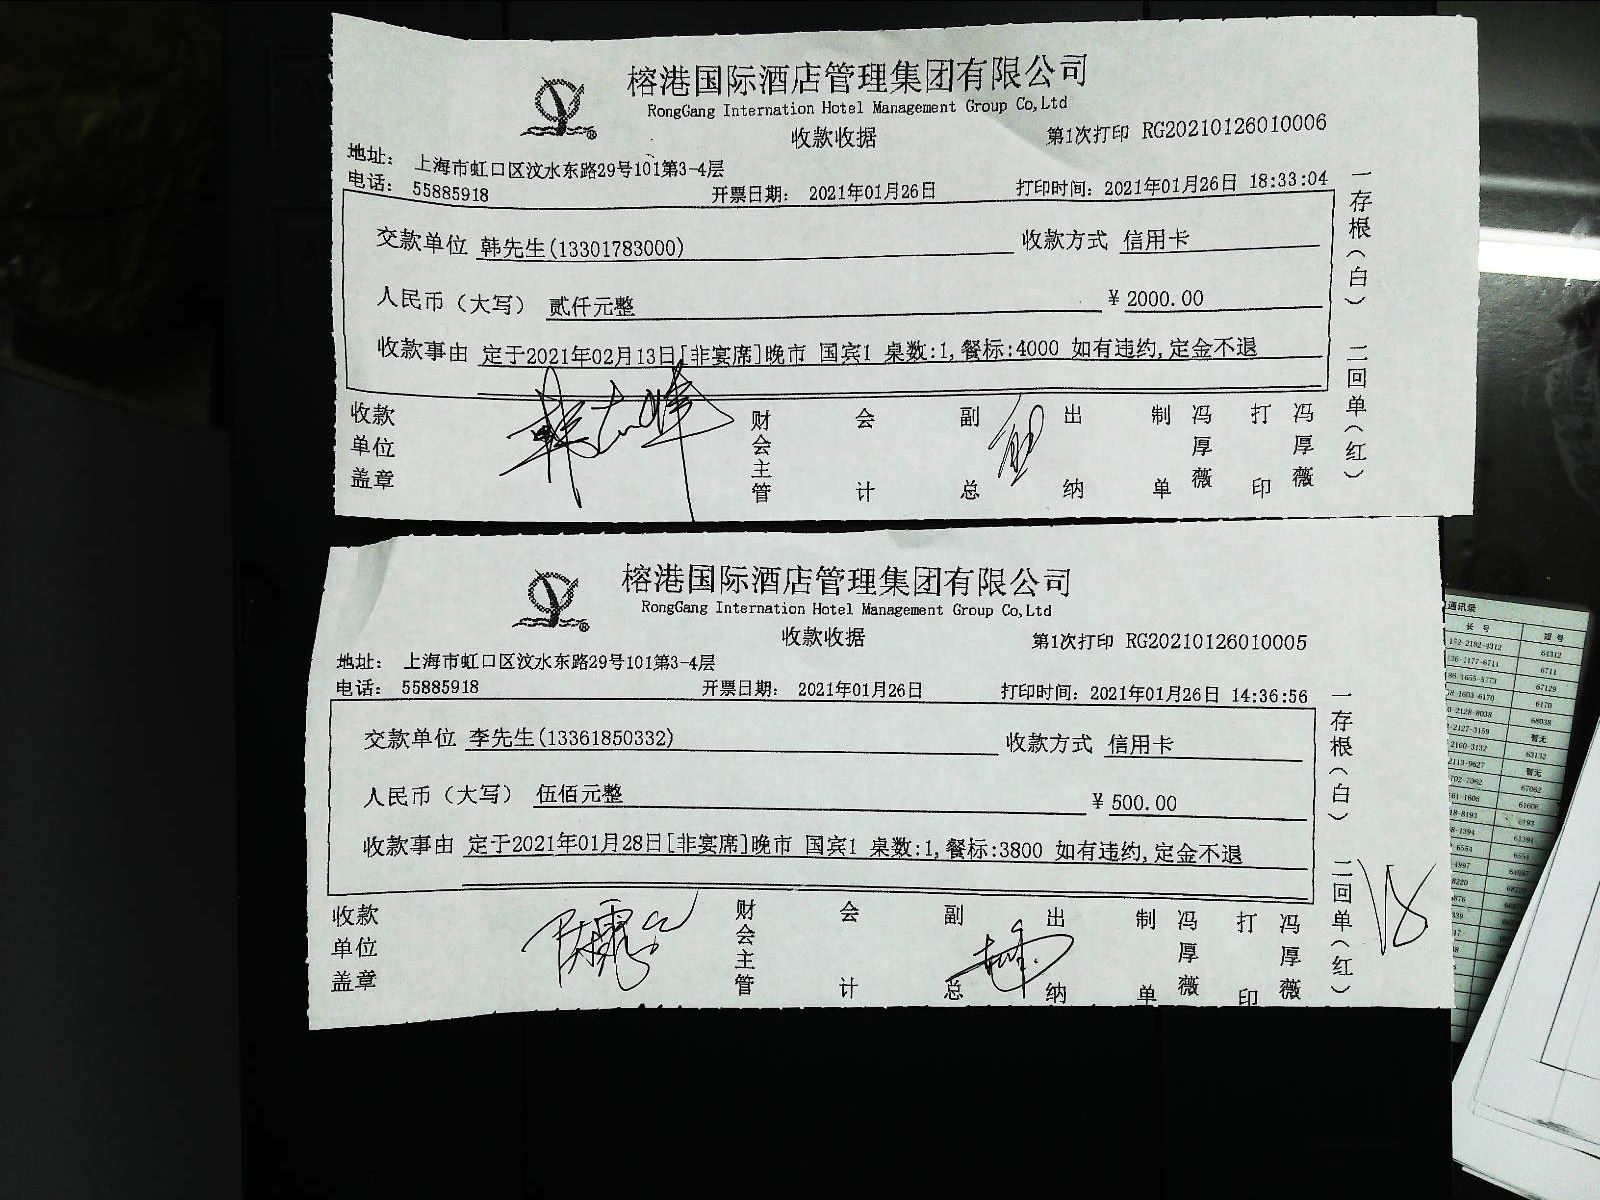 榕港国际酒店管理集团有限公司
RongGang Internation Hotel Management Group Co,Ltd
收款收据
第1次打印 RG20210126010006
地址： 上海市虹口区汶水东路29号101第3-4层
电话： 55885918
开票日期： 2021年01月26日
打印时间：2021年01月26日 18:33:04
交款单位 韩先生(13301783000)
收款方式 信用卡
人民币（大写） 贰仟元整
¥ 2000.00
收款事由 定于2021年02月13日[非宴席]晚市 国宾1 桌数:1,餐标:4000 如有违约,定金不退
收款单位盖章
财会主管
会计
副总
出纳
制单 冯厚薇
打印 冯厚薇
一存根（白） 二回单（红）
榕港国际酒店管理集团有限公司
RongGang Internation Hotel Management Group Co,Ltd
收款收据
第1次打印 RG20210126010005
地址： 上海市虹口区汶水东路29号101第3-4层
电话： 55885918
开票日期： 2021年01月26日
打印时间：2021年01月26日 14:36:56
交款单位 李先生(13361850332)
收款方式 信用卡
人民币（大写） 伍佰元整
¥ 500.00
收款事由 定于2021年01月28日[非宴席]晚市 国宾1 桌数:1,餐标:3800 如有违约,定金不退
收款单位盖章
财会主管
会计
副总
出纳
制单 冯厚薇
打印 冯厚薇
一存根（白） 二回单（红）
通讯录
长 号
短 号
64312
6711
67129
6170
68038
暂无
63132
暂无
67062
61606